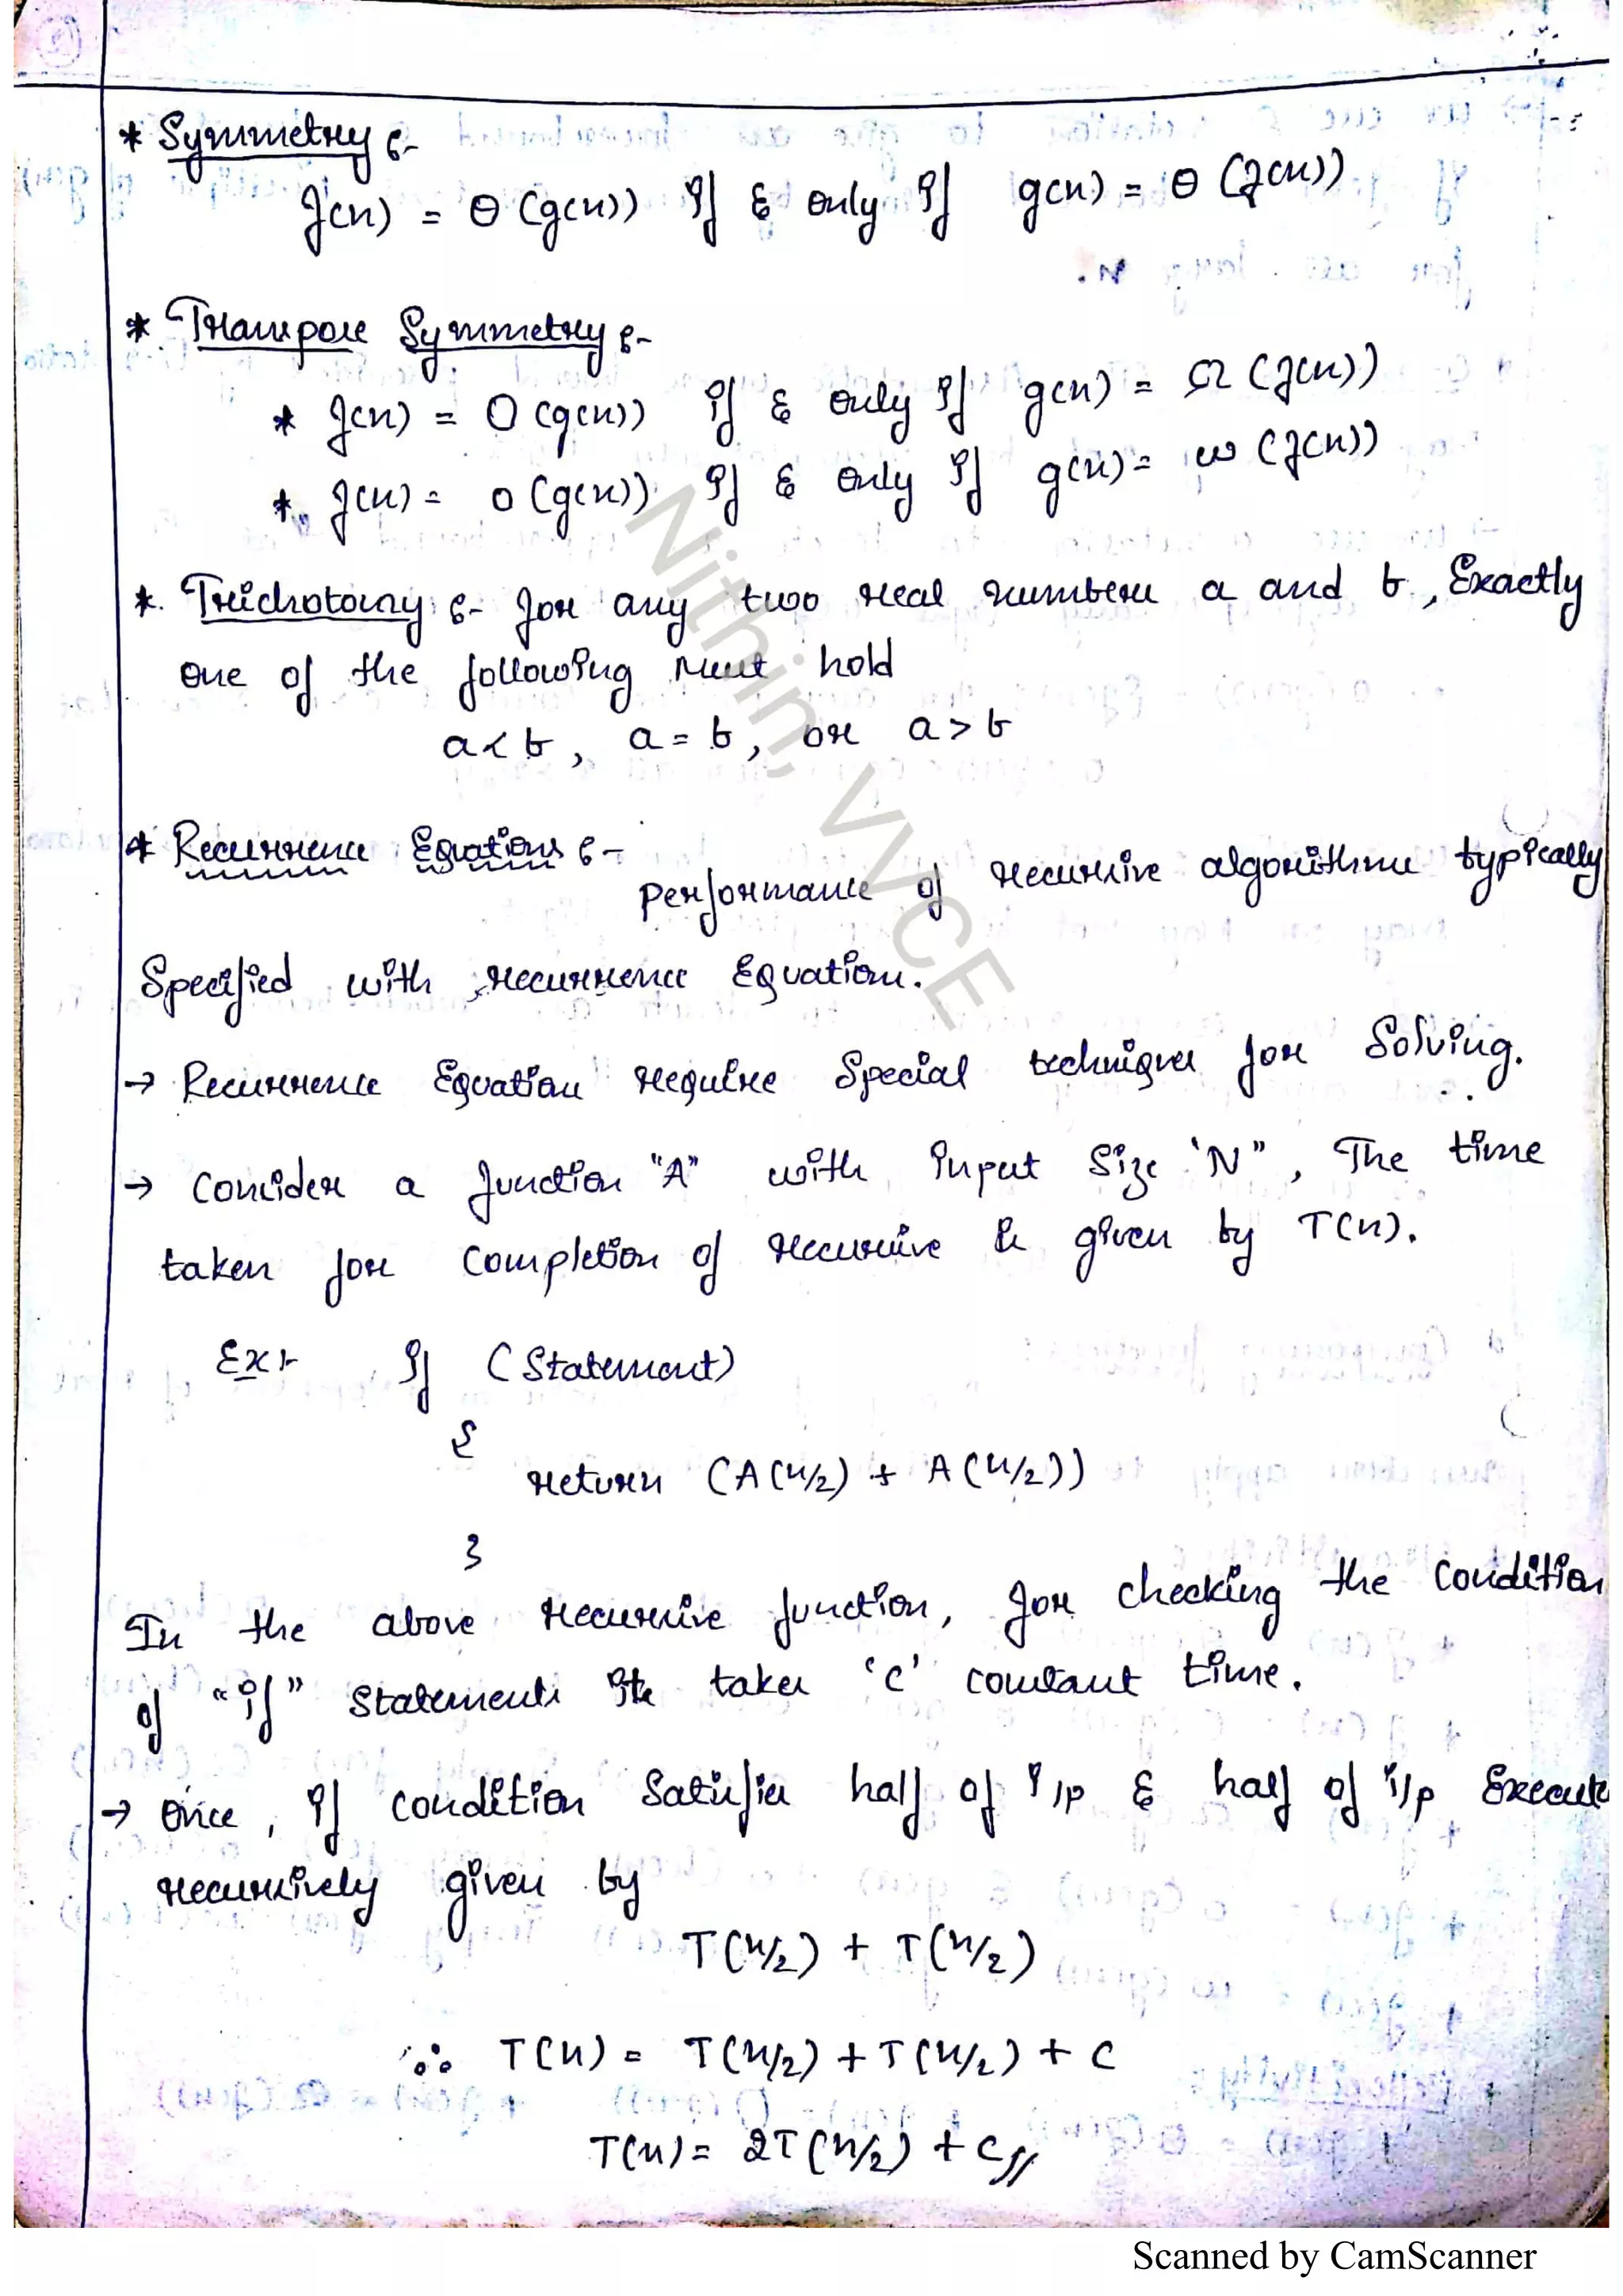 * Symmetry :-
f(n) = Θ (g(n)) if & only if g(n) = Θ (f(n))
* Transpose Symmetry :-
* f(n) = O (g(n)) if & only if g(n) = Ω (f(n))
* f(n) = o (g(n)) if & only if g(n) = ω (f(n))
* Trichotomy :- for any two real numbers a and b, Exactly
one of the following must hold
a < b, a = b, or a > b
* Recurrence Equations :-
performance of recursive algorithms typically
Specified with recurrence Equations.
→ Recurrence Equations require Special techniques for Solving.
→ Consider a function "A" with input Size 'N", The time
taken for Completion of recursive is given by T(n).
Ex :- if (Statement)
{
return (A(n/2) + A(n/2))
}
In the above recursive function, for checking the Condition
of "if" Statements its takes 'c' constant time.
→ Once, if condition Satisfies half of i/p & half of i/p Execute
recursively given by
T(n/2) + T(n/2)
∴ T(n) = T(n/2) + T(n/2) + c
T(n) = 2T(n/2) + c//
Nithin, VVCE
Scanned by CamScanner